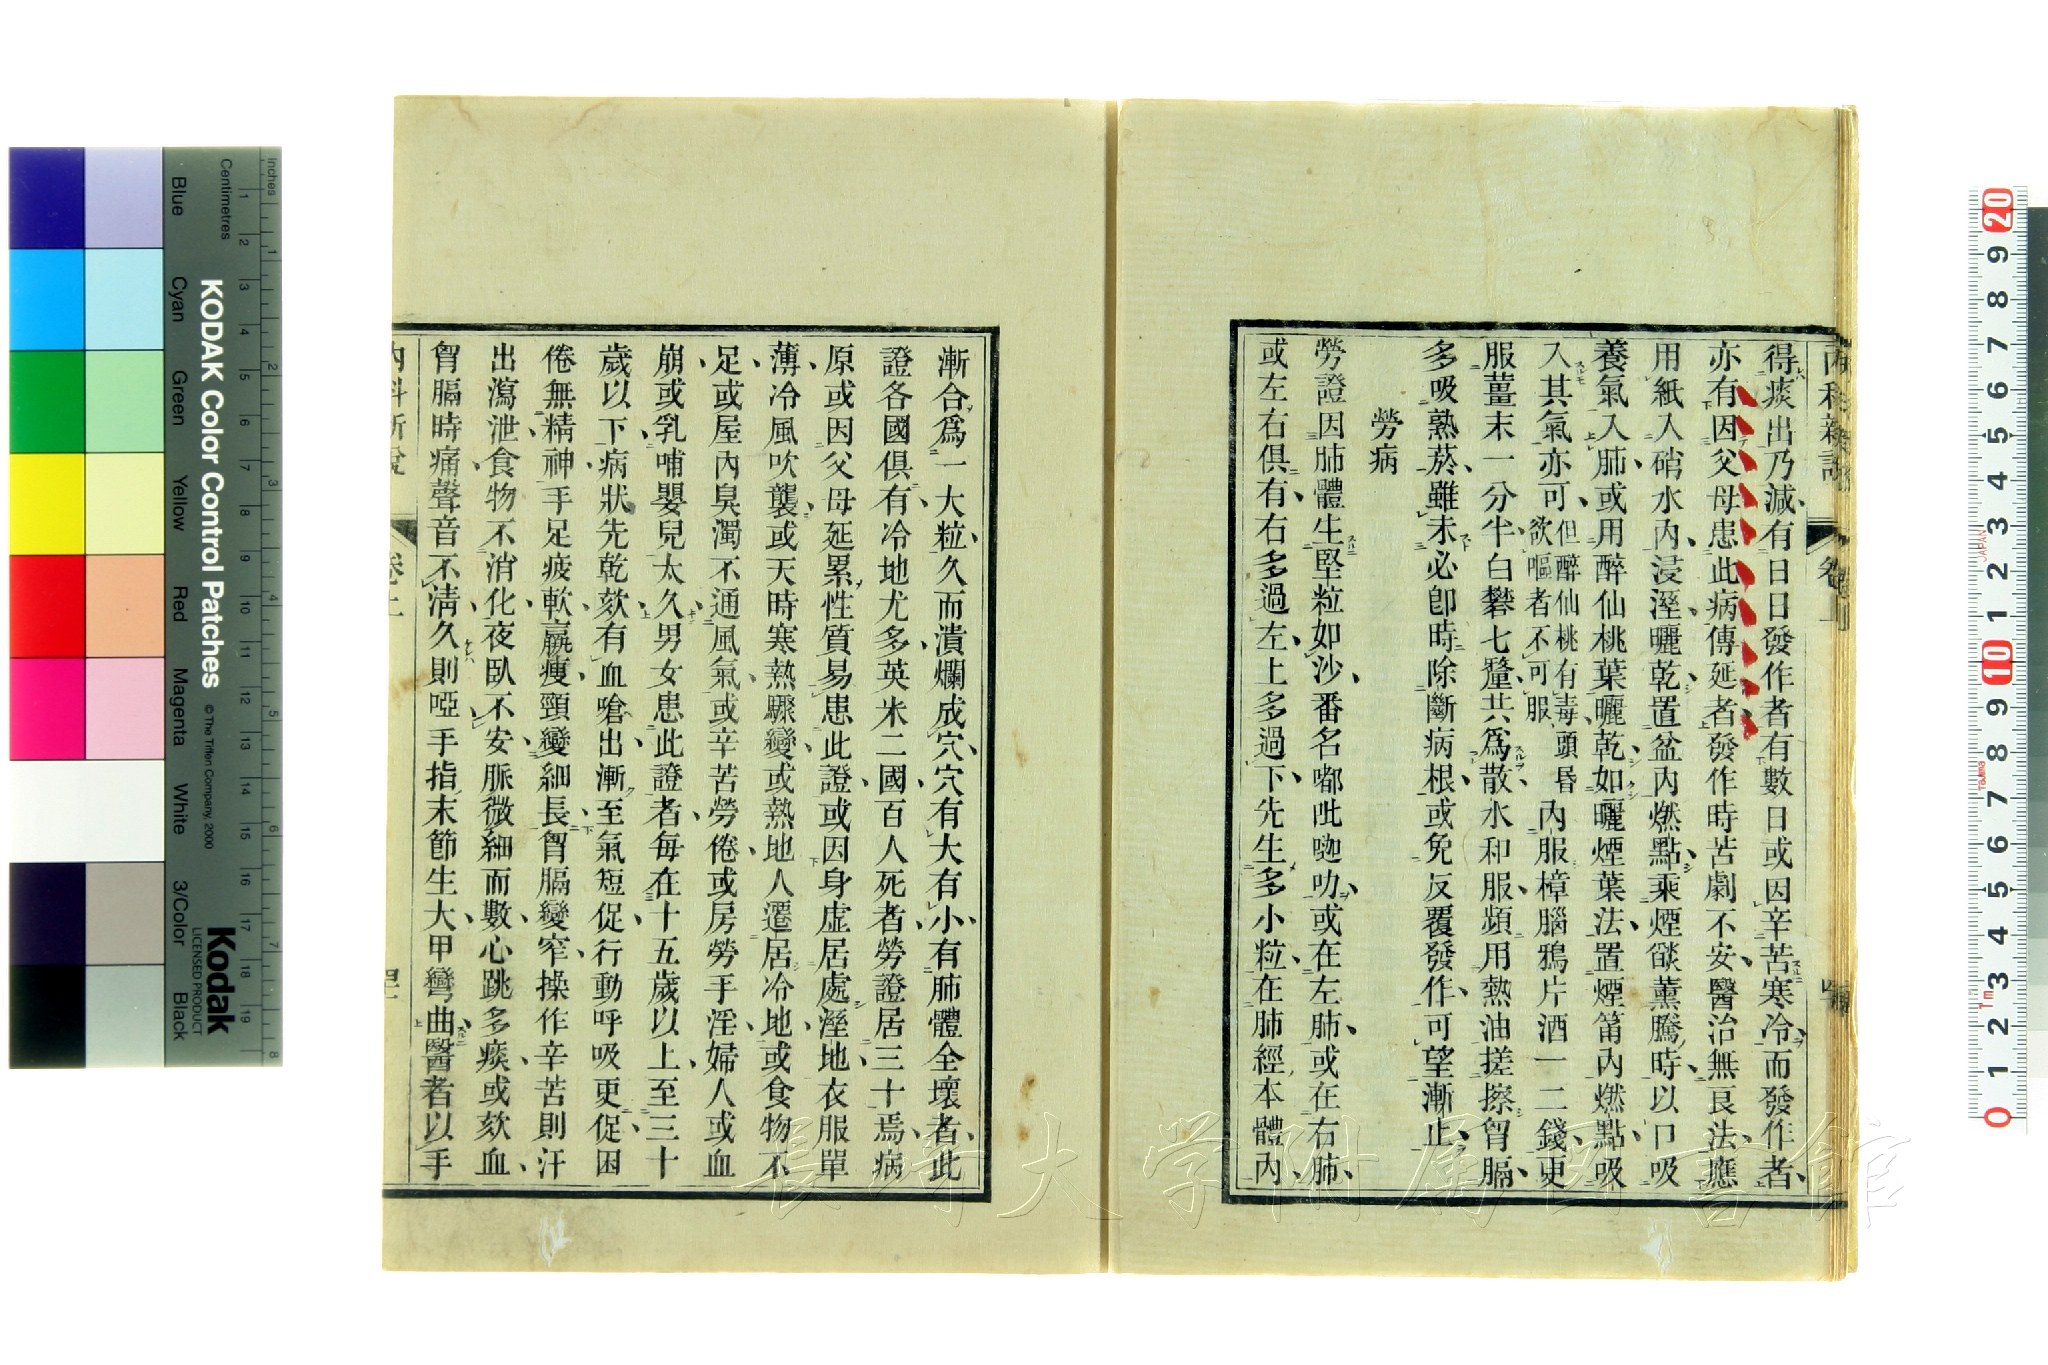 得痰出乃減有日日發作者有數日或因辛苦寒冷而發作者
亦有因父母患此病傳延者發作時苦劇不安醫治無良法應
用紙入硝水內浸溼曬乾置盆內燃點乘煙燄薰騰時以口吸
養氣入肺或用醉仙桃葉曬乾如曬煙葉法置煙筩內燃點吸
入其氣亦可但醉仙桃有毒頭昏欲嘔者不可服內服樟腦鴉片酒一二錢更
服薑末一分半白礬七釐共為散水和服頻用熱油搓擦胷膈
多吸熟菸雖未必卽時除斷病根或免反覆發作可望漸止
勞病
勞證因肺體生堅粒如沙番名嘟呲唿叻或在左肺或在右肺
或左右俱有右多過左上多過下先生多小粒在肺經本體內
漸合爲一大粒久而潰爛成穴穴有大有小有肺體全壞者此
證各國俱有冷地尤多英米二國百人死者勞證居三十焉病
原或因父母延累性質易患此證或因身虛居處溼地衣服單
薄冷風吹襲或天時寒熱驟變或熱地人遷居冷地或食物不
足或屋內臭濁不通風氣或辛苦勞倦或房勞手淫婦人或血
崩或乳哺嬰兒太久男女患此證者每在十五歲以上至三十
歲以下病狀先乾欬有血嗆出漸至氣短促行動呼吸更促困
倦無精神手足疲軟羸瘦頸變細長胷膈變窄操作辛苦則汗
出瀉泄食物不消化夜臥不安脈微細而數心跳多痰或欬血
胷膈時痛聲音不淸久則啞手指末節生大甲彎曲醫者以手
內科新說
卷上
長崎大学附属図書館
KODAK Color Control Patches
© The Tiffen Company, 2000
Kodak
LICENSED PRODUCT
Inches
Centimetres
Blue
Cyan
Green
Yellow
Red
Magenta
White
3/Color
Black